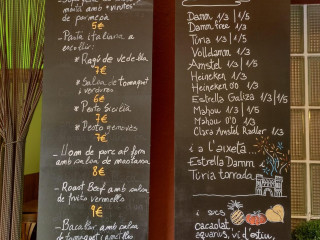 menta amb virutes
de parmesà
5€
- Pasta italiana a
escollir:
* Ragú de vedella
7€
* Salsa de tomaquet
i verdures
6€
* Pesto Sicilia
7€
* Pesto genovés
7€
- Llom de porc al forn
amb salsa de mostassa
8€
- Roast Beef amb salsa
de fruits vermells
9€
- Bacallar amb salsa
de tomaquet i
Damm 1/3 | 1/5
Damm free 1/3
Turia 1/3 | 1/5
Volldamm 1/3
Amstel 1/3 | 1/5
Heineken 1/3
Heineken 0'0 1/3
Estrella Galiza 1/3 | 1/5
Mahou 1/3 | 1/5
Mahou 0'0 1/3
Clara Amstel Radler 1/3
i a l'aixeta
Estrella Damm i
Turia torrada
i sucs
cacaolat,
aquarius, vi d'estiu,